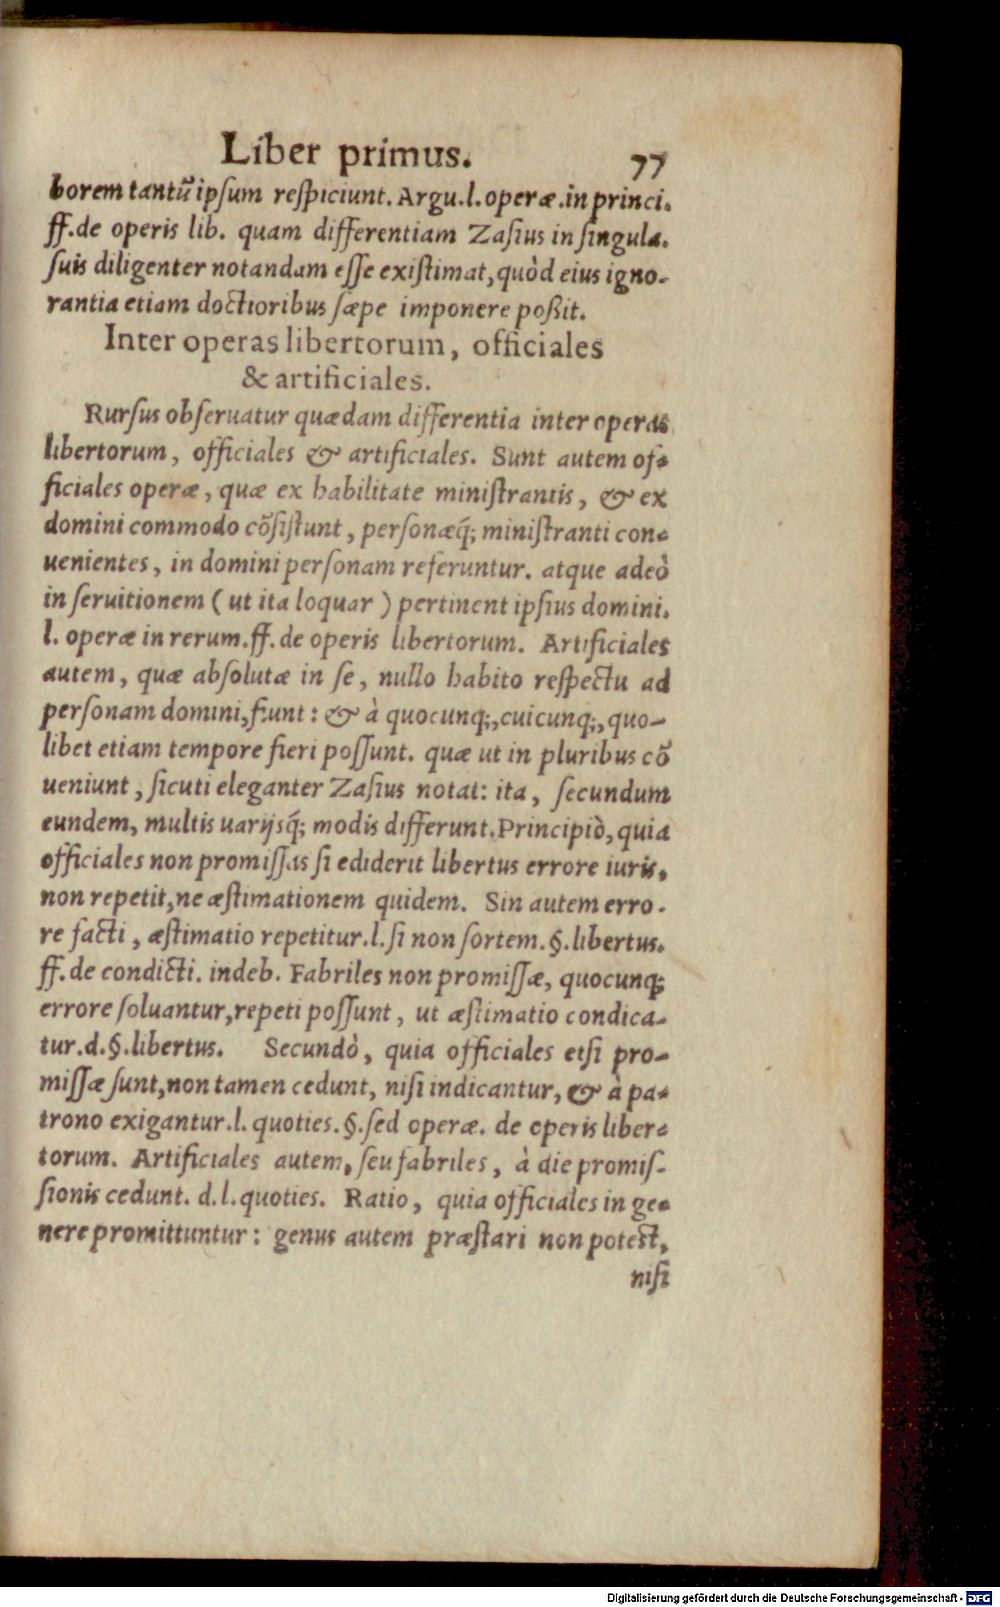 Liber primus. 77
borem tantũ ipſum reſpiciunt. Argu.l.operæ.in princi.
ff.de operis lib. quam differentiam Zaſius in ſingula.
ſuis diligenter notandam eſſe exiſtimat, quòd eius igno-
rantia etiam doctioribus ſæpe imponere poßit.
Inter operas libertorum, officiales
& artificiales.
Rurſus obſeruatur quædam differentia inter operas
libertorum, officiales & artificiales. Sunt autem of-
ficiales operæ, quæ ex habilitate miniſtrantis, & ex
domini commodo cõſiſtunt, perſonæq́; miniſtranti con-
uenientes, in domini perſonam referuntur. atque adeò
in ſeruitionem (ut ita loquar) pertinent ipſius domini.
l. operæ in rerum.ff.de operis libertorum. Artificiales
autem, quæ abſolutæ in ſe, nullo habito reſpectu ad
perſonam domini, fiunt: & à quocunq;, cuicunq;, quo-
libet etiam tempore fieri poſſunt. quæ ut in pluribus cõ
ueniunt, ſicuti eleganter Zaſius notat: ita, ſecundum
eundem, multis uarijsq́; modis differunt. Principiò, quia
officiales non promiſſas ſi ediderit libertus errore iuris,
non repetit, ne æſtimationem quidem. Sin autem erro-
re facti, æſtimatio repetitur.l.ſi non ſortem.§.libertus.
ff.de condicti. indeb. Fabriles non promiſſæ, quocunq;
errore ſoluantur, repeti poſſunt, ut æſtimatio condica-
tur.d.§.libertus. Secundò, quia officiales etſi pro-
miſſæ ſunt, non tamen cedunt, niſi indicantur, & à pa-
trono exigantur.l. quoties.§.ſed operæ. de operis liber-
torum. Artificiales autem, ſeu fabriles, à die promiſ-
ſionis cedunt. d.l.quoties. Ratio, quia officiales in ge-
nere promittuntur: genus autem præſtari non poteſt,
niſi
Digitalisierung gefördert durch die Deutsche Forschungsgemeinschaft - DFG